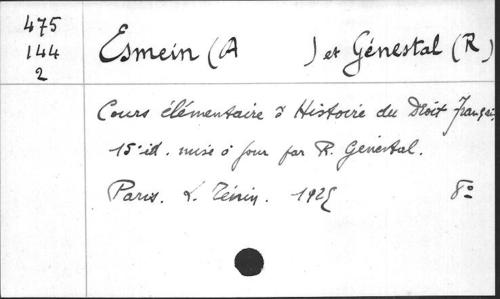 475
144
2
Esmein (A ) et Génestal (R)
Cours élémentaire d'Histoire du Droit français,
15e éd. mise à jour par R. Génestal.
Paris. L. Tenin. 1925 8º